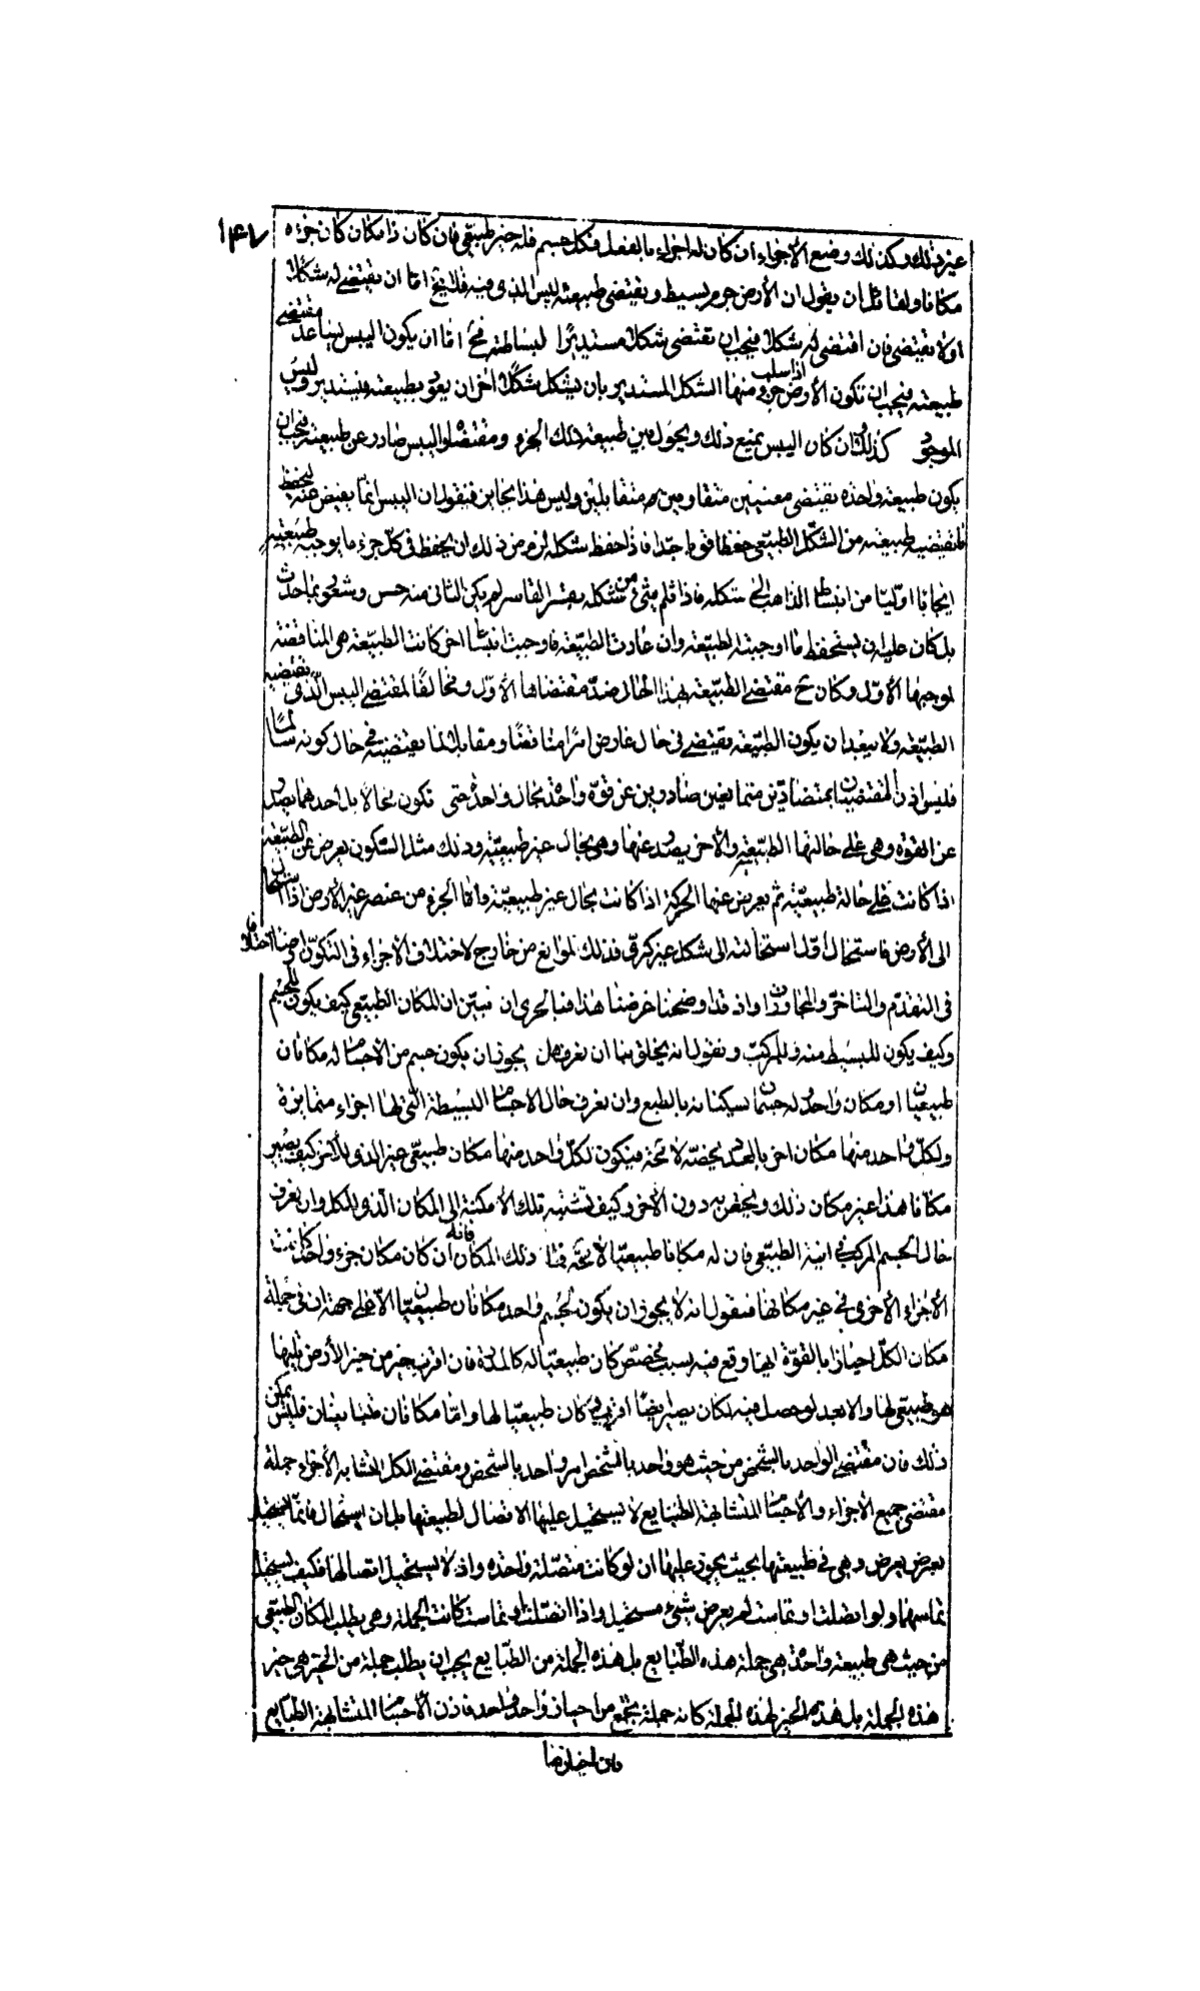 ١٤٧
غير ذلك وكذلك وضع الأجزاء ان كان له اجزاء بالفعل فكل جسم فله حيز طبيعى فان كان ذا مكان كان حيزه
مكانا ولقائل ان يقول ان الأرض جرم بسيط ويقتضى طبيعته اليبس الذى فيه فلا يخ اما ان يقتضى له شكلا
اولا يقتضى فان اقتضى له شكلا فيجب ان تقتضى شكلا مستديرا لبساطته فح اما ان يكون اليبس يساعد مقتضى
طبيعته فيجب ان تكون الأرض اذا سلب جزء منها الشكل المستدير بان يشكل شكلا اخر ان يعود بطبيعته فيستدير وليس
الموجود كذلك وان كان اليبس يمنع ذلك ويحول بين طبيعة ذلك الجزء ومقتضاها واليبس صادر عن طبيعته فيجب ان
يكون طبيعة واحدة يقتضى معنيين متقاومين متقابلين وليس هذا بجايز فنقول ان اليبس انما يفيض عنه ليحفظ
ما تقتضيه طبيعته من الشكل الطبيعى حفظا قويا جدا فاذا حفظ شكله لزم من ذلك ان يحفظ فى كل جزء ما يوجبه طبيعته
ايجابا اوليا من انبساط الذاهب الى شكله فاذا ثلم شئ من شكله بقسر القاسر لم يكن الثانى منه حس وشعور بما حدث
بل كان عليه ان يستحفظ ما اوجبته الطبيعة وان عادت الطبيعة فاوجبت انبساطا اخر كانت الطبيعة هى المناقضة
لموجبها الأول وكان ح مقتضى الطبيعة بهذا الحال ضد مقتضاها الأول ومخالفا لمقتضى اليبس الذى تقتضيه
الطبيعة ولا يبعد ان يكون الطبيعة يقتضى فى حال عارض امرا مناقضا ومقابلا لما يقتضيه فى حال كونه سالما
فليس اذن المقتضيان بمتضادين متمانعين صادرين عن قوة واحدة بحال واحدة حتى تكون محالا بل احدهما يصدر
عن القوة وهى على حالتها الطبيعية والأخر يصدر عنها وهى بحال غير طبيعية وذلك مثل السكون يعرض عن الطبيعة
اذا كانت على حالة طبيعية ثم يعرض عنها الحركة اذا كانت بحال غير طبيعية واما الجزء من عنصر غير الأرض اذا استحال
الى الأرض فاستحال اول استحالته الى شكل غير كرى فذلك لموانع من خارج لاختلاف الاجزاء فى التكون ايضا اختلافا
فى التقدم والتاخر والمجاورة واذ قد اوضحنا غرضنا هذا فبالحرى ان نبين ان المكان الطبيعى كيف يكون للجسم
وكيف يكون للبسيط منه وللمركب ونقول انه يخلق بنا ان نعرف هل يجوز ان يكون جسم من الأجسام له مكانان
طبيعيان او مكان واحد له جسمان يسكنانه بالطبع وان نعرف حال الاجسام البسيطة التى لها اجزاء متمايزة
ولكل واحد منها مكان اخر بالعدد يخصه لا محة فيكون لكل واحد منها مكان طبيعى غير الذى للآخر كيف يصير
مكانا هذا غير مكان ذلك ويختص به دون الآخر وكيف تنسب تلك الأمكنة الى المكان الذى للكل وان نعرف
حال الجسم المركب فى اينه الطبيعى فان له مكانا طبيعيا لا محة فما ذلك المكان فانه ان كان مكان جزء واحد كانت
الأجزاء الأخرى فى غير مكانها فنقول انه لا يجوز ان يكون لجسم واحد مكانان طبيعيان الا على جهة ان فى جملة
مكان الكل احيازا بالقوة ايها وقع فيه بسبب مخصص كان طبيعيا له كالمدرة فان اقرب حيز من حيز الأرض يليها
هو طبيعى لها والابعد لو حصل فيه لكان يصير ايضا اقرب فكان طبيعيا لها واما مكانان متباينان فليس يمكن
ذلك فان مقتضى الواحد بالشخص من حيث هو واحد بالشخص امر واحد بالشخص ومقتضى الكل المتشابه الأجزاء جملة
مقتضى جميع الأجزاء والأجسام المتشابهة الطبايع لا يستحيل عليها الاتصال لطبيعتها فان استحال فانما يستحيل
بعرض يعرض وهى فى طبيعتها بحيث يجوز عليها ان لو كانت متصلة واحدة واذ لا يستحيل اتصالها فكيف يستحيل
تماسها ولو اتصلت او تماست لم يعرض شئ مستحيل واذا اتصلت او تماست كانت الجملة وهى يطلب المكان الطبيعى
من حيث هى طبيعة واحدة هى جملة هذه الطبايع بل هذه الجملة من الطبايع يجب ان يطلب جملة من الحيز هى حيز
هذه الجملة بل هذه الحيز لهذه الجملة كانه جملة يجتمع من احياز واحد واحد فاذن الأجسام المتشابهة الطبايع